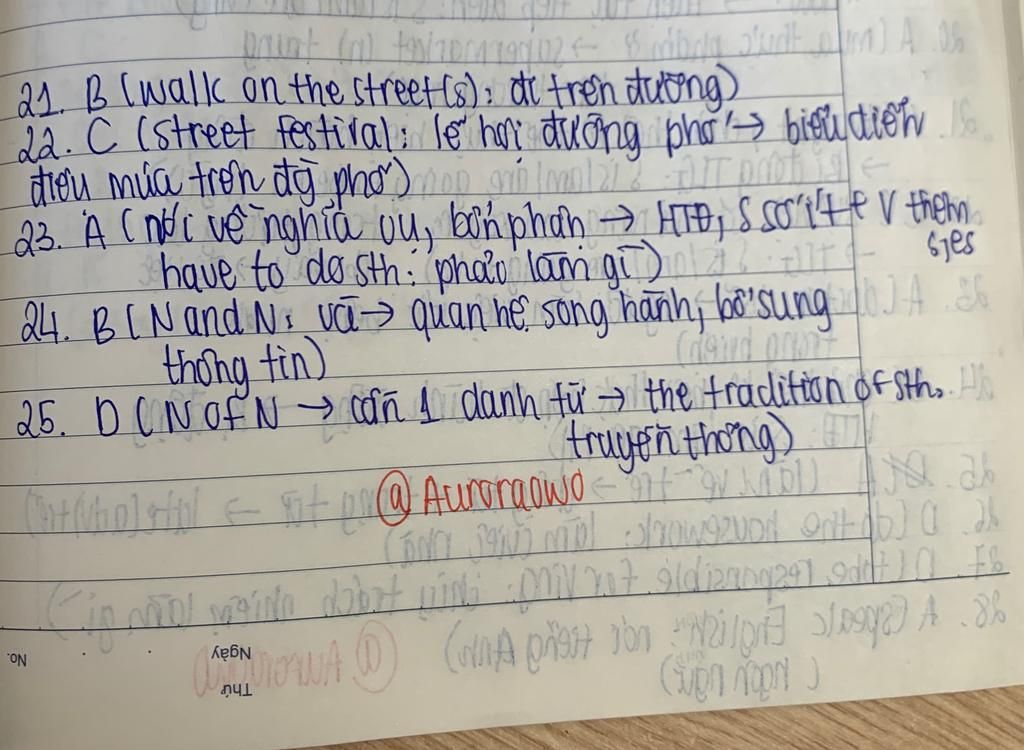 21. B (walk on the street(s): đi trên đường)
22. C (street festival: lễ hội đường phố → biểu diễn
điệu múa trên đg phố)
23. A (nói về nghĩa vụ, bổn phận → HTĐ, S số ít + V thêm
s,es
have to do sth: phải làm gì)
24. B (N and N: và → quan hệ song hành, bổ sung
thông tin)
25. D (N of N → cần 1 danh từ → the tradition of sth.
truyền thống)
@ Auroraowo
No.
Ngày
Thứ